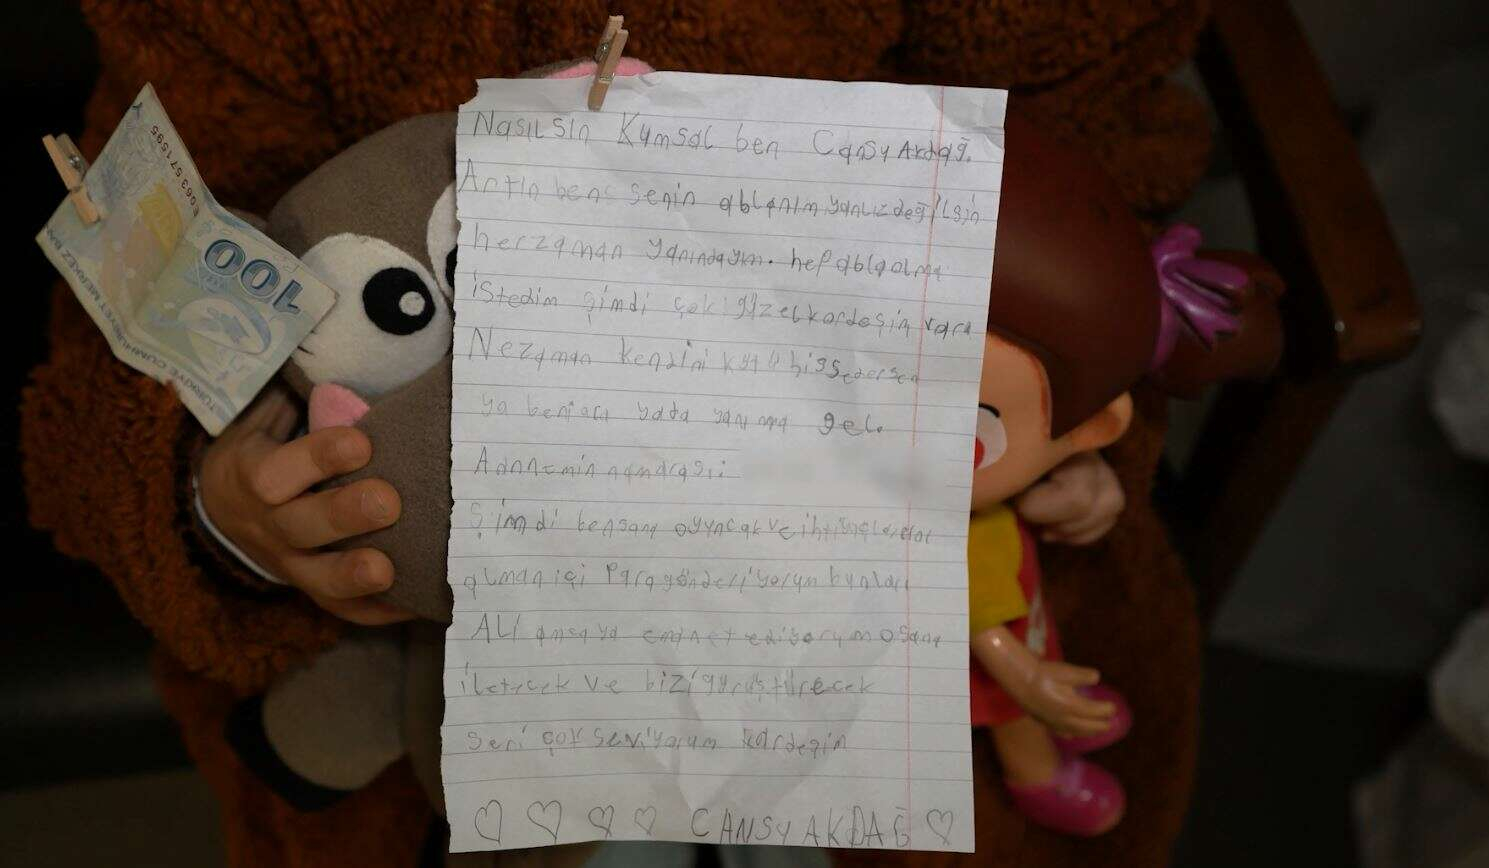 E063571595
100
TÜRKİYE CUMHURİYET MERKEZ BAN
Nasılsın Kumsal ben Cansu Akdağ.
Artın ben senin ablanım yanlız değilsin
herzaman yanındayım. hep abla olma
istedim şimdi çok güzel kardeşim vara
Nezaman kendini kötü hissedersen
ya beni ara yada yanıma gel.
Adnnemin numarası:
Şimdi ben sana oyuncak ve ihtiyaçlarını
alman içi Para gönderiyorum bunları
ALİ amcaya emanet ediyorum o sana
iletecek ve bizi görüştürecek
Seni çok seviyorum kardeşim
CANSU AKDAĞ